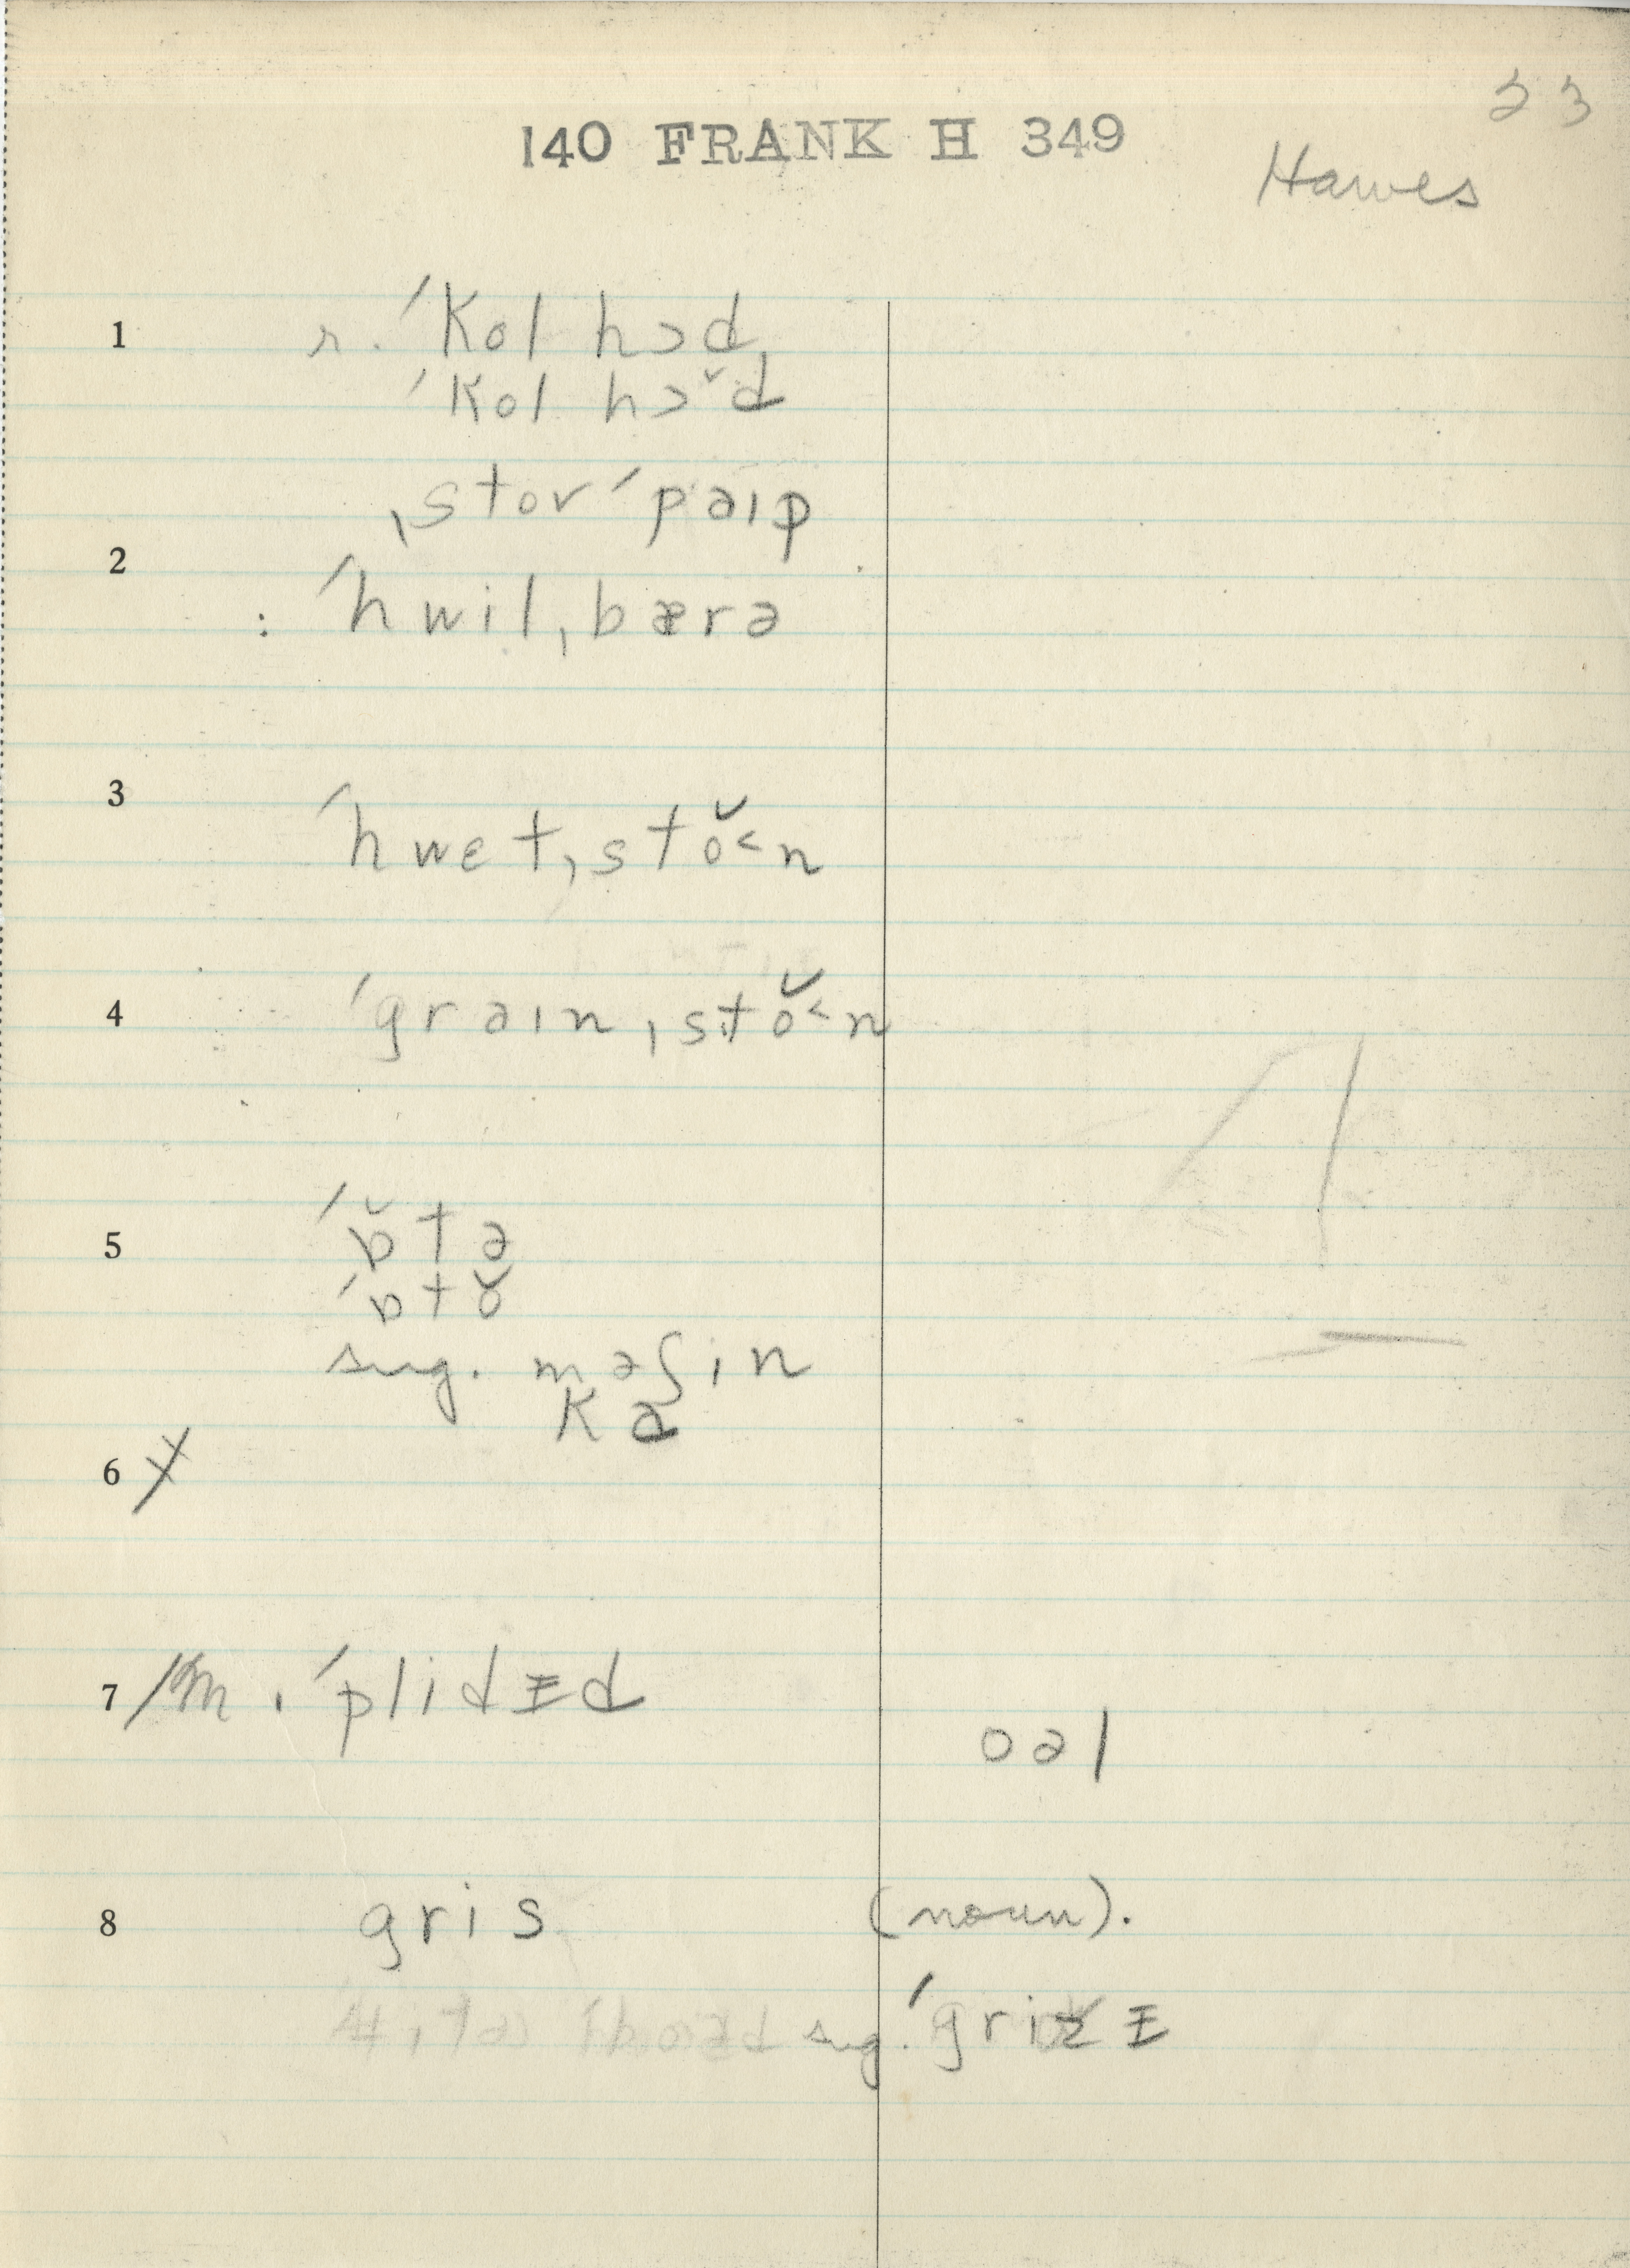 23
140 FRANK H 349
Hawes
1 r. ˈkol hɔd,
ˈkol hɔ̆d
ˌstov ˈpəɪp
2
: ˈhwilˌbærə
3
ˈhwetˌstŏ˂n
4 ˈgrəɪnˌstŏ˂n
5 ˈɒ̆tə
ˈɒtŏ
sug. məʃin
ka
6 ⌿
7 /m. ˈplidɪd
oəl
8 gris (noun).
sug. ˈgrizɪ